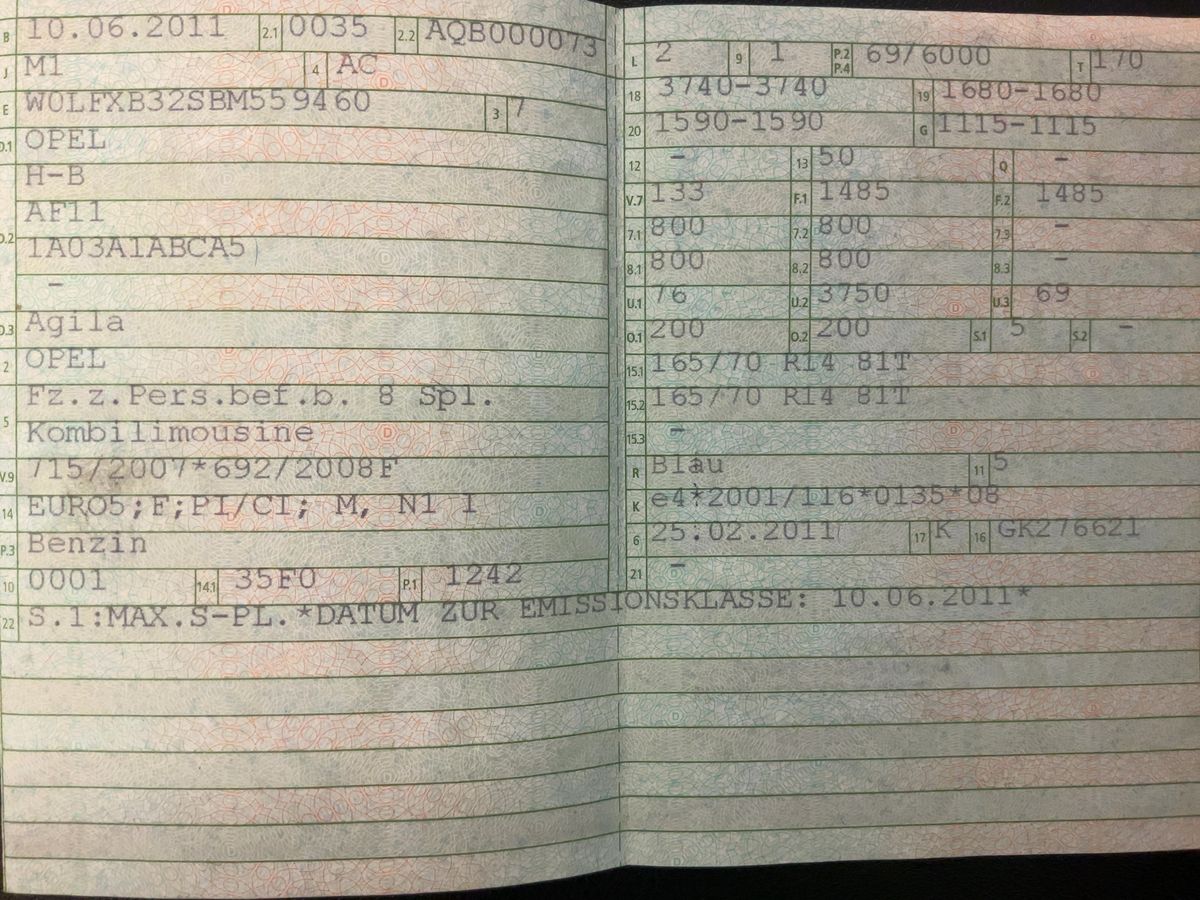 B 10.06.2011 2.1 0035 2.2 AQB000073
J M1 4 AC
E W0LFXB32SBM559460 3 7
D.1 OPEL
H-B
AF11
D.2
1A03A1ABCA5
-
D.3 Agila
2 OPEL
Fz.z.Pers.bef.b. 8 Spl.
5
Kombilimousine
V.9 715/2007*692/2008F
14 EURO5;F;PI/CI; M, N1 I
P.3 Benzin
10 0001 14.1 35F0 P.1 1242
22 S.1:MAX.S-PL.*DATUM ZUR EMISSIONSKLASSE: 10.06.2011*
L 2 9 1 P.2 P.4 69/6000 T 170
18 3740-3740 19 1680-1680
20 1590-1590 G 1115-1115
12 - 13 50 Q -
V.7 133 F.1 1485 F.2 1485
7.1 800 7.2 800 7.3 -
8.1 800 8.2 800 8.3 -
U.1 76 U.2 3750 U.3 69
O.1 200 O.2 200 S.1 5 S.2 -
15.1 165/70 R14 81T
15.2 165/70 R14 81T
15.3 -
R Blau 11 5
K e4*2001/116*0135*08
6 25.02.2011 17 K 16 GK276621
21 -